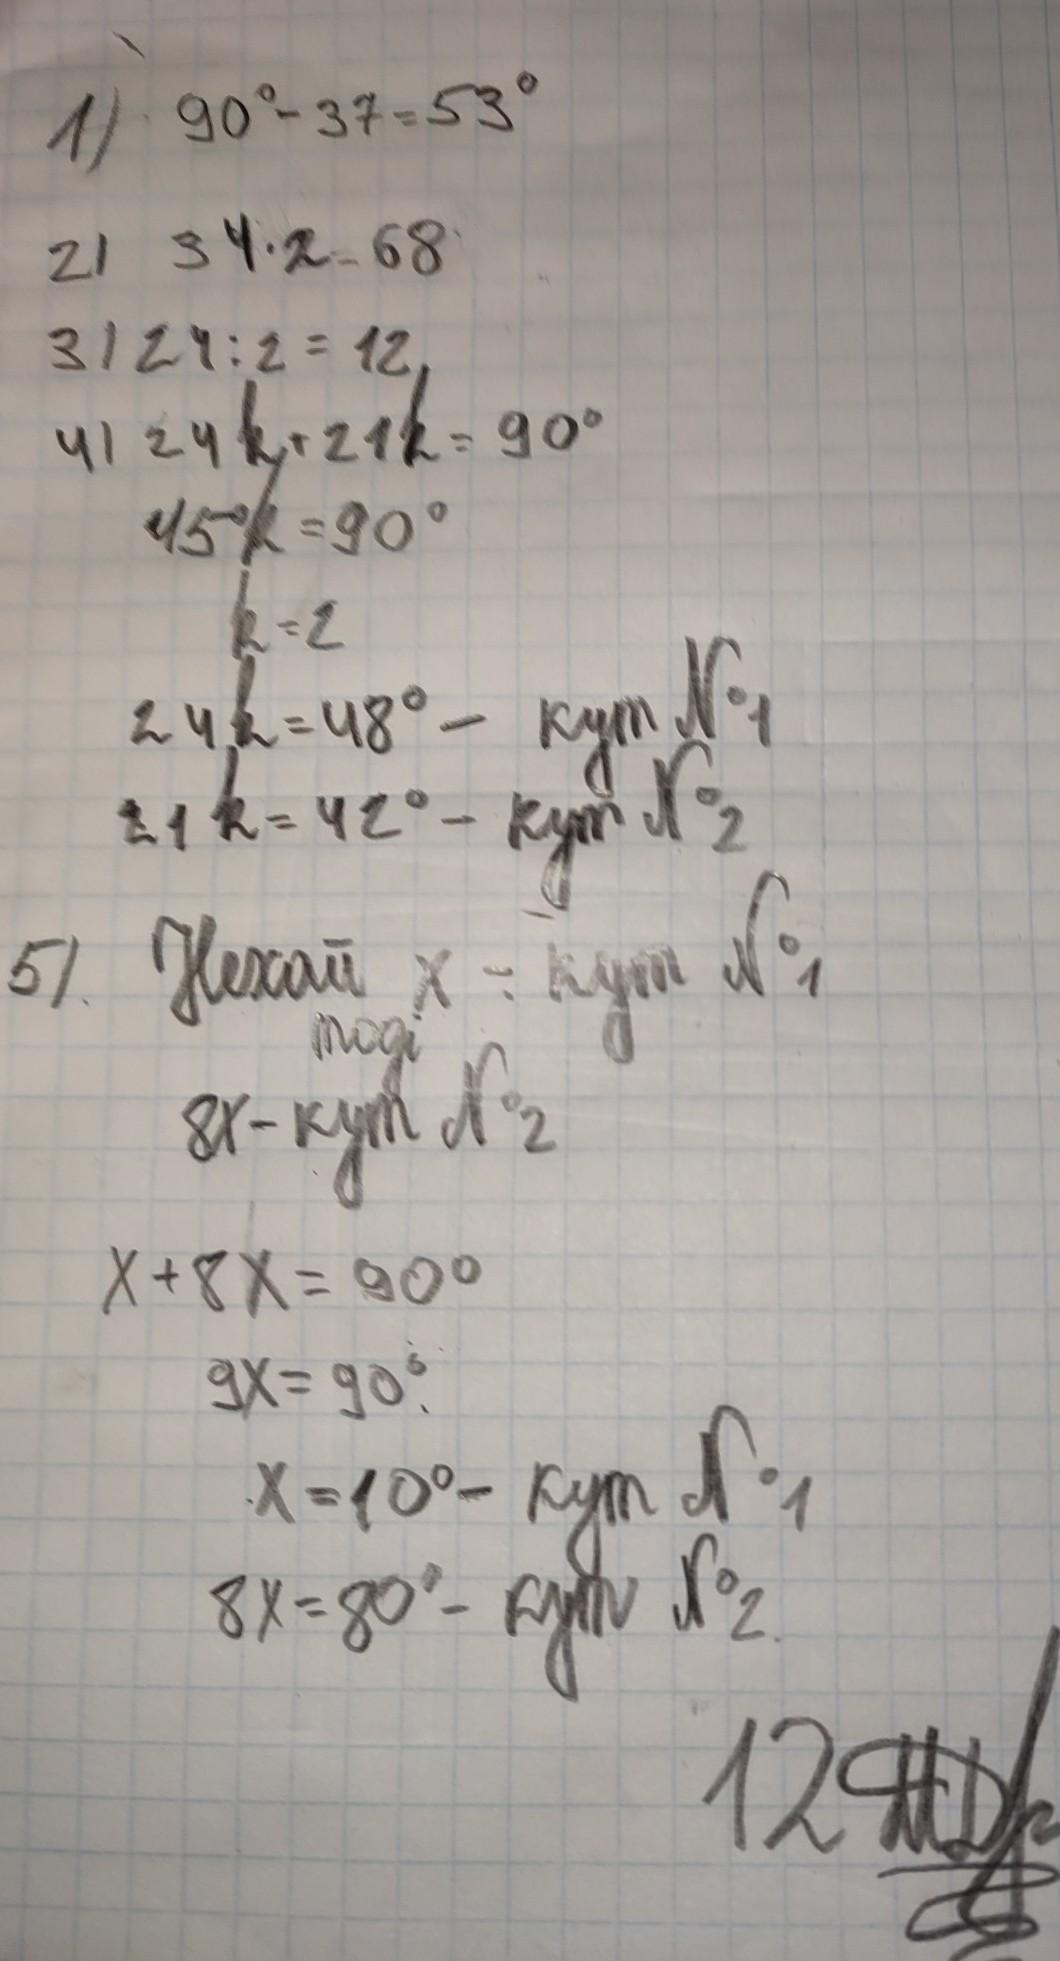 1) 90° - 37 = 53°
2) 34 · 2 = 68
3) 24 : 2 = 12
4) 24k + 21k = 90°
45k = 90°
k = 2
24k = 48° - кут №1
21k = 42° - кут №2
5). Нехай x - кут №1
тоді
8x - кут №2
x + 8x = 90°
9x = 90°.
x = 10° - кут №1
8x = 80° - кут №2.
12